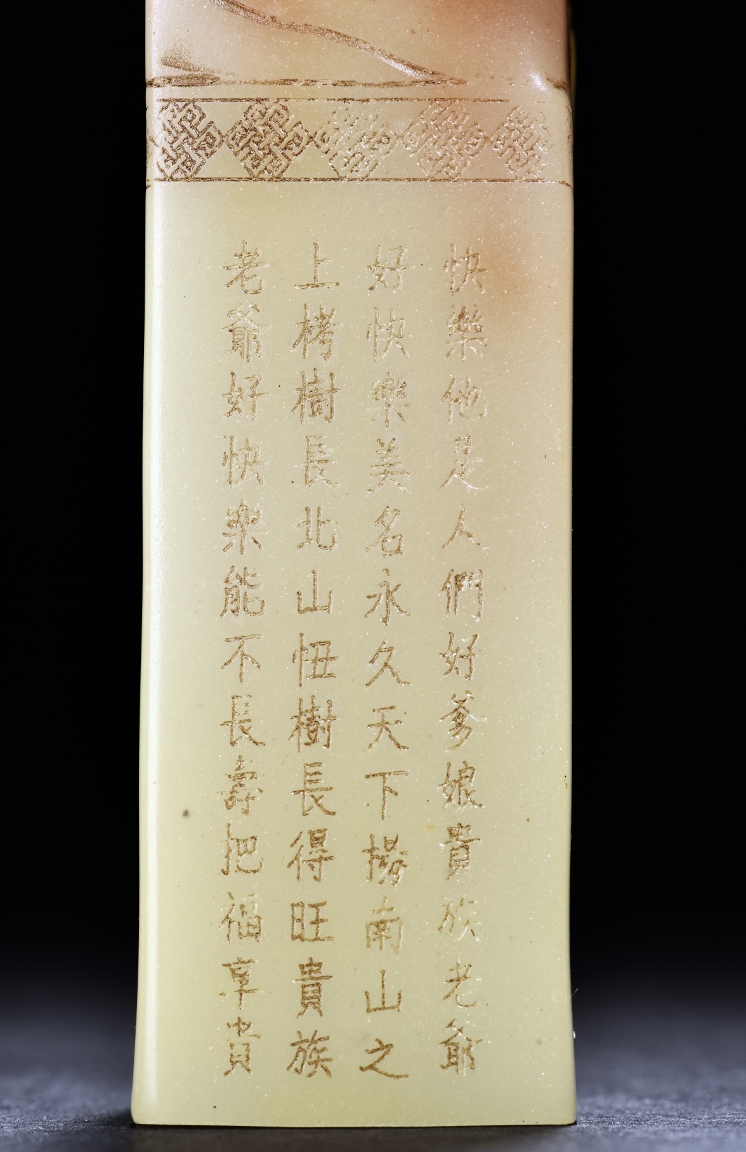 快樂他是人們好爹娘貴族老爺
好快樂美名永久天下揚南山之
上栲樹長北山忸樹長得旺貴族
老爺好快樂能不長壽把福享貴